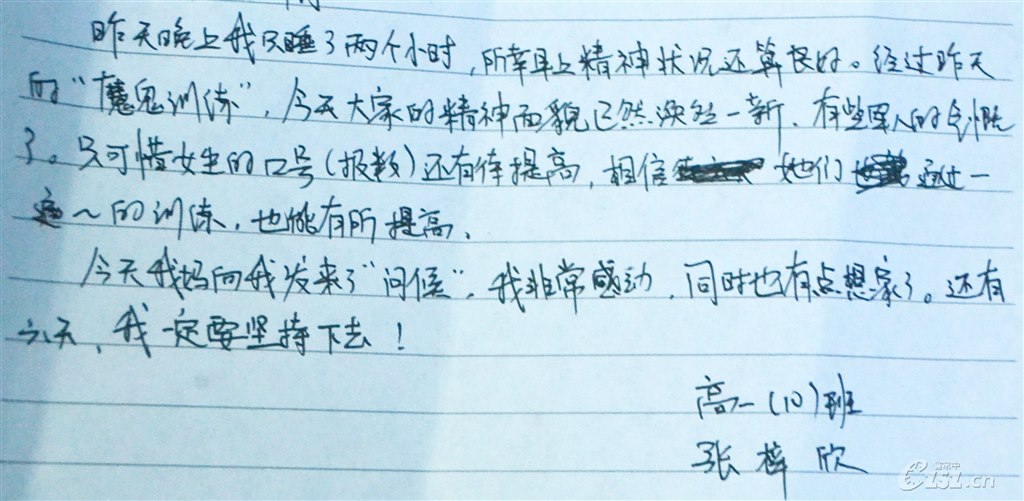 昨天晚上我只睡了两个小时,所幸早上精神状况还算良好。经过昨天
的“魔鬼训练”,今天大家的精神面貌已然焕然一新、有些军人的感觉
了。只可惜女生的口号(报数)还有待提高,相信 她们 通过一
遍~的训练,也能有所提高、
今天我妈向我发来了“问候”,我非常感动,同时也有点想家了。还有
六天,我一定要坚持下去!
高一(10)班
张梓欣